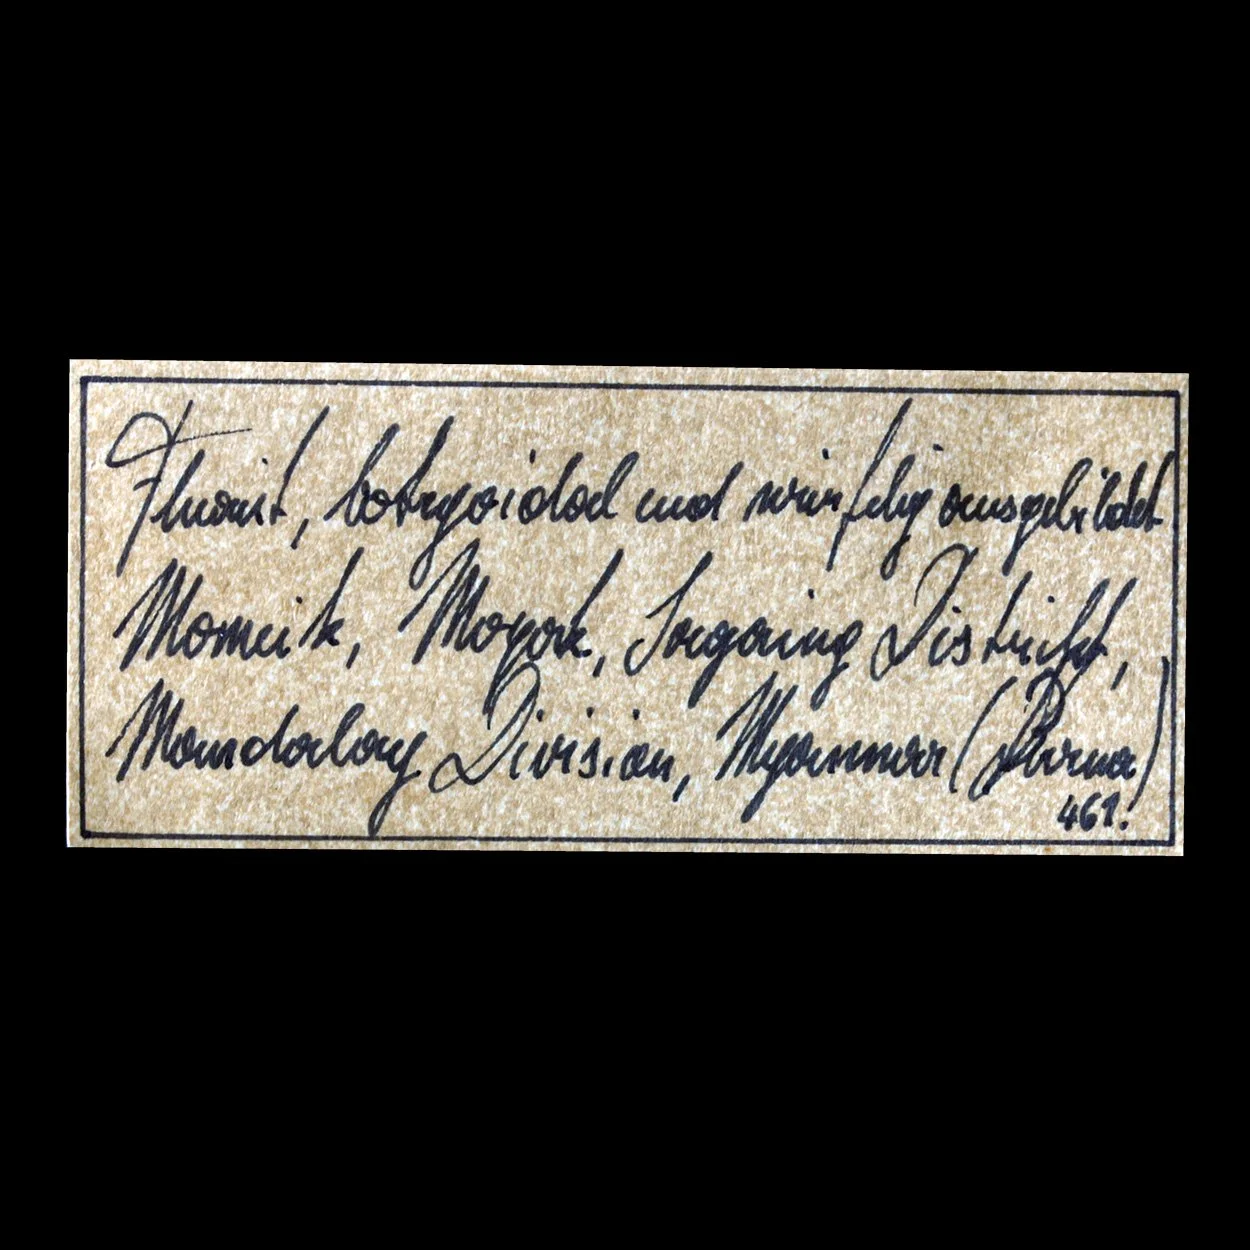 Fluorit, botryoidal und würfelig ausgebildet
Momeik, Mogok, Sagaing District,
Mandalay Division, Myanmar (Burma)
461.